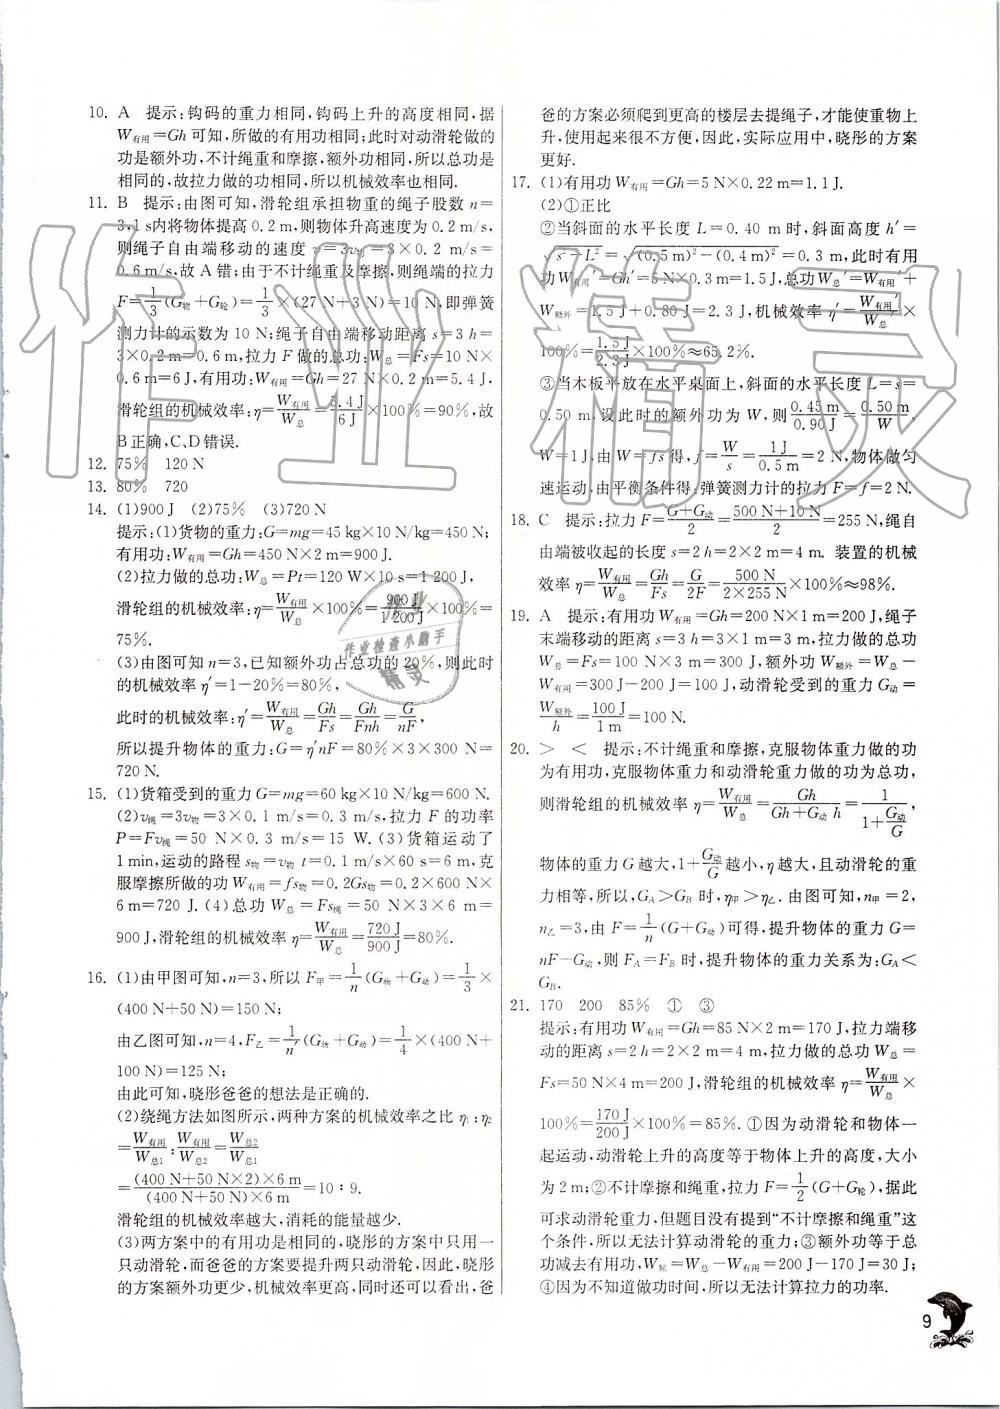 10. A 提示:钩码的重力相同,钩码上升的高度相同,据
W有用=Gh可知,所做的有用功相同;此时对动滑轮做的
功是额外功,不计绳重和摩擦,额外功相同,所以总功是
相同的,故拉力做的功相同,所以机械效率也相同.
11. B 提示:由图可知,滑轮组承担物重的绳子股数 n=
3,1 s内将物体提高0.2 m,则物体升高速度为0.2 m/s,
则绳子自由端移动的速度 v=3v物=3×0.2 m/s=
0.6 m/s,故A错;由于不计绳重及摩擦,则绳端的拉力
F=1/3(G物+G轮)=1/3×(27 N+3 N)=10 N,即弹簧
测力计的示数为 10 N;绳子自由端移动距离 s=3 h=
3×0.2 m=0.6 m,拉力 F 做的总功:W总=Fs=10 N×
0.6 m=6 J,有用功:W有用=Gh=27 N×0.2 m=5.4 J,
滑轮组的机械效率:η=W有用/W总=5.4 J/6 J×100%=90%,故
B正确,C、D错误.
12. 75% 120 N
13. 80% 720
14. (1)900 J (2)75% (3)720 N
提示:(1)货物的重力:G=mg=45 kg×10 N/kg=450 N;
有用功:W有用=Gh=450 N×2 m=900 J.
(2)拉力做的总功:W总=Pt=120 W×10 s=1 200 J,
滑轮组的机械效率:η=W有用/W总×100%=900 J/1 200 J×100%=
75%.
(3)由图可知n=3,已知额外功占总功的20%,则此时
的机械效率η′=1-20%=80%,
此时的机械效率:η′=W有用/W总=Gh/Fs=Gh/Fnh=G/nF,
所以提升物体的重力:G=η′nF=80%×3×300 N=
720 N.
15. (1)货箱受到的重力G=mg=60 kg×10 N/kg=600 N.
(2)v绳=3v物=3×0.1 m/s=0.3 m/s,拉力 F 的功率
P=Fv绳=50 N×0.3 m/s=15 W. (3)货箱运动了
1 min,运动的路程 s物=v物 t=0.1 m/s×60 s=6 m,克
服摩擦所做的功 W有用=fs物=0.2Gs物=0.2×600 N×
6 m=720 J. (4)总功 W总=Fs绳=50 N×3×6 m=
900 J,滑轮组的机械效率 η=W有用/W总=720 J/900 J=80%.
16. (1)由甲图可知,n=3,所以 F甲=1/n(G物+G动)=1/3×
(400 N+50 N)=150 N;
由乙图可知,n=4,F乙=1/n′(G物+G动)=1/4×(400 N+
100 N)=125 N;
由此可知,晓彤爸爸的想法是正确的.
(2)绕绳方法如图所示,两种方案的机械效率之比 η1:η2
=W有用/W总1:W有用/W总2=W总2/W总1
=(400 N+50 N×2)×6 m/(400 N+50 N)×6 m=10∶9.
滑轮组的机械效率越大,消耗的能量越少.
(3)两方案中的有用功是相同的,晓彤的方案中只用一
只动滑轮,而爸爸的方案要提升两只动滑轮,因此,晓彤
的方案额外功更少,机械效率更高,同时还可以看出,爸
爸的方案必须爬到更高的楼层去提绳子,才能使重物上
升,使用起来很不方便,因此,实际应用中,晓彤的方案
更好.
17. (1)有用功W有用=Gh=5 N×0.22 m=1.1 J.
(2)①正比
②当斜面的水平长度 L=0.40 m时,斜面高度h′=
√s²-L²=√(0.5 m)²-(0.4 m)²=0.3 m,此时有用
功W有用′=Gh′=5 N×0.3 m=1.5 J,总功W总′=W有用′+
W额外=1.5 J+0.80 J=2.3 J,机械效率η′=W有用′/W总′×
100%=1.5 J/2.3 J×100%≈65.2%.
③当木板平放在水平桌面上,斜面的水平长度 L=s=
0.50 m,设此时的额外功为 W,则0.45 m/0.90 J=0.50 m/W,
W=1 J,由 W=fs 得,f=W/s=1 J/0.5 m=2 N,物体做匀
速运动,由平衡条件得:弹簧测力计的拉力 F=f=2 N.
18. C 提示:拉力 F=G+G动/2=500 N+10 N/2=255 N,绳自
由端被收起的长度 s=2 h=2×2 m=4 m. 装置的机械
效率η=W有用/W总=Gh/Fs=G/2F=500 N/2×255 N×100%≈98%.
19. A 提示:有用功 W有用=Gh=200 N×1 m=200 J,绳子
末端移动的距离 s=3 h=3×1 m=3 m,拉力做的总功
W总=Fs=100 N×3 m=300 J,额外功 W额外=W总-
W有用=300 J-200 J=100 J,动滑轮受到的重力 G动=
W额外/h=100 J/1 m=100 N.
20. > < 提示:不计绳重和摩擦,克服物体重力做的功
为有用功,克服物体重力和动滑轮重力做的功为总功,
则滑轮组的机械效率 η=W有用/W总=Gh/Gh+G动 h=1/1+G动/G,
物体的重力G越大,1+G动/G越小,η越大,且动滑轮的重
力相等,所以,GA>GB 时,η甲>η乙. 由图可知,n甲=2,
n乙=3,由 F=1/n(G+G动)可得,提升物体的重力G=
nF-G动,则 FA=FB 时,提升物体的重力关系为:GA<
GB.
21. 170 200 85% ① ③
提示:有用功 W有用=Gh=85 N×2 m=170 J,拉力端移
动的距离 s=2 h=2×2 m=4 m,拉力做的总功 W总=
Fs=50 N×4 m=200 J,滑轮组的机械效率 η=W有用/W总×
100%=170 J/200 J×100%=85%. ①因为动滑轮和物体一
起运动,动滑轮上升的高度等于物体上升的高度,大小
为2 m;②不计摩擦和绳重,拉力 F=1/2(G+G轮),据此
可求动滑轮重力,但题目没有提到“不计摩擦和绳重”这
个条件,所以无法计算动滑轮的重力;③额外功等于总
功减去有用功,W额=W总-W有用=200 J-170 J=30 J;
④因为不知道做功时间,所以无法计算拉力的功率.
9
作业精灵
作业
作业检查小助手
精灵